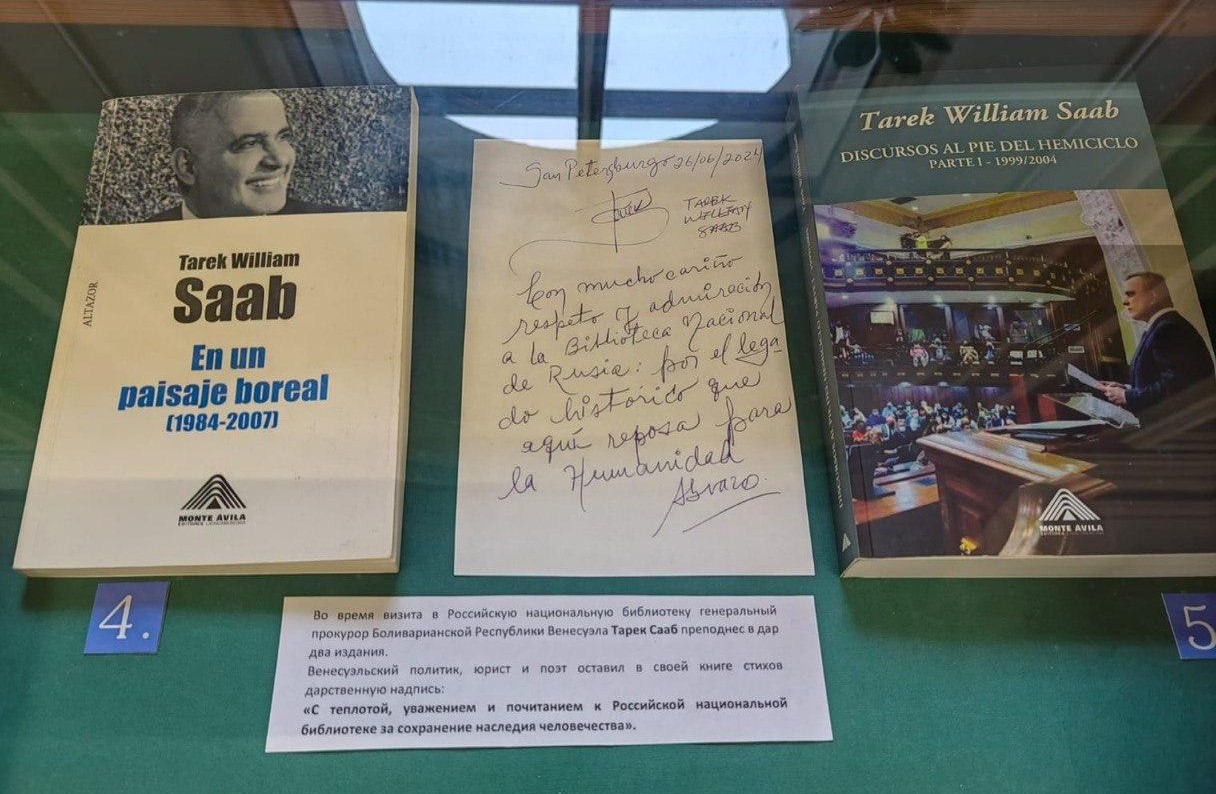 ALTAZOR
Tarek William
Saab
En un
paisaje boreal
(1984-2007)
MONTE ÁVILA
EDITORES LATINOAMERICANA
4.
San Petersburgo 26/06/2024
TAREK
WILLIAM
SAAB
Con mucho cariño
respeto y admiración
a la Biblioteca Nacional
de Rusia: por el lega
do histórico que
aquí reposa para
la Humanidad
Tarek William Saab
DISCURSOS AL PIE DEL HEMICICLO
PARTE I - 1999/2004
MONTE ÁVILA
5
Во время визита в Российскую национальную библиотеку генеральный
прокурор Боливарианской Республики Венесуэла Тарек Сааб преподнес в дар
два издания.
Венесуэльский политик, юрист и поэт оставил в своей книге стихов
дарственную надпись:
«С теплотой, уважением и почитанием к Российской национальной
библиотеке за сохранение наследия человечества».